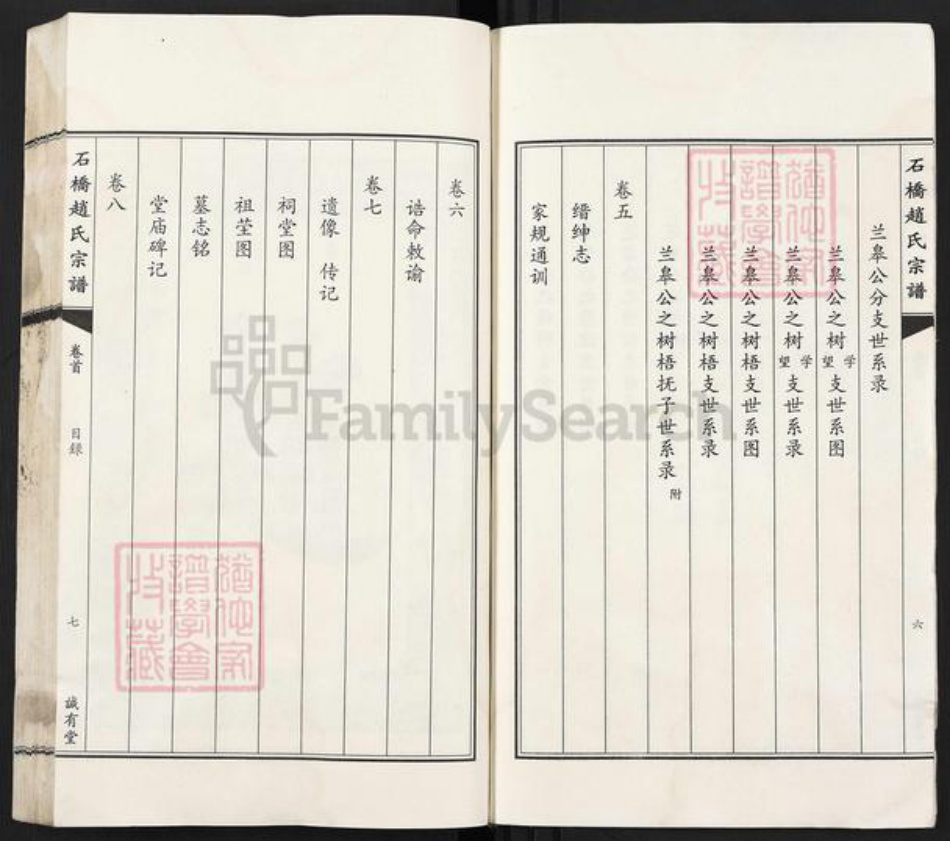 石橋趙氏宗譜
六
兰皋公分支世系录
兰皋公之树学望支世系图
兰皋公之树学望支世系录
兰皋公之树梧支世系图
兰皋公之树梧支世系录
兰皋公之树梧抚子世系录附
卷五
缙绅志
家规通训
卷六
诰命敕谕
卷七
遗像 传记
祠堂图
祖茔图
墓志铭
堂庙碑记
卷八
石橋趙氏宗譜
卷首 目録
七
誠有堂
譜學會
收藏
FamilySearch
譜學會
收藏